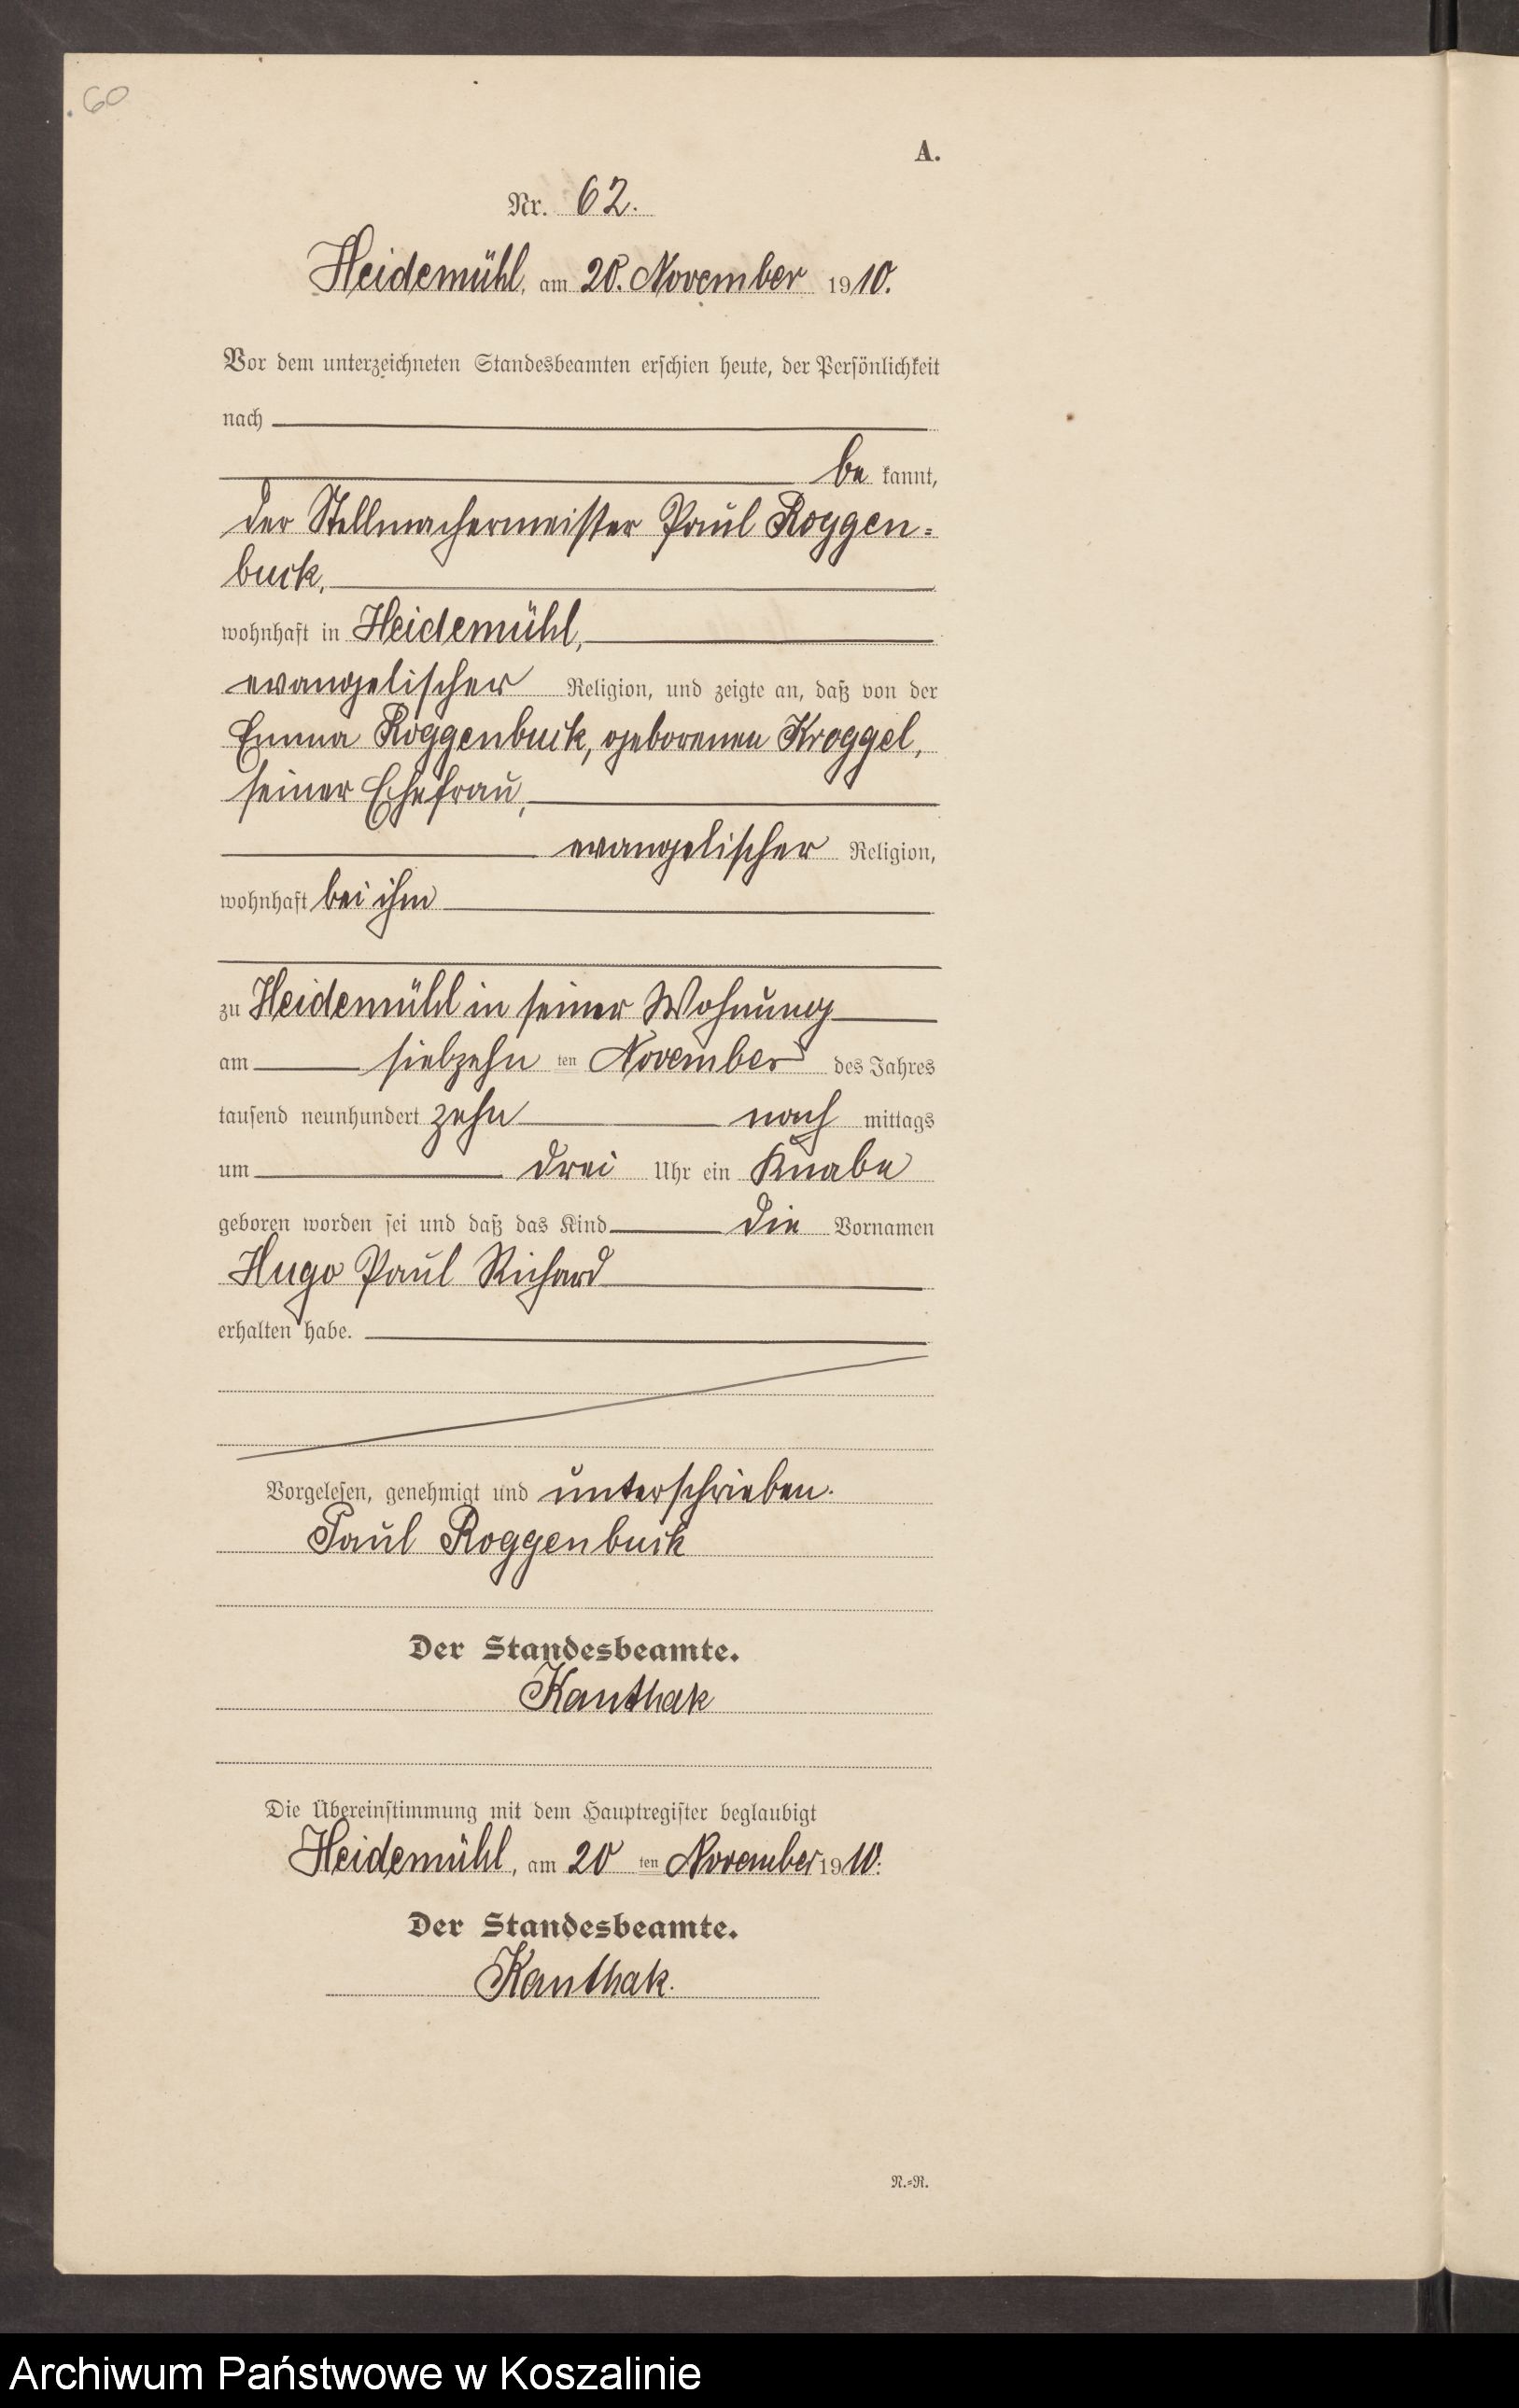 60
A.
Nr. 62.
Heidemühl, am 20. November 1910.
Vor dem unterzeichneten Standesbeamten erschien heute, der Persönlichkeit
nach
be kannt,
der Stellmachermeister Paul Roggen=
buck,
wohnhaft in Heidemühl,
evangelischer Religion, und zeigte an, daß von der
Emma Roggenbuck, geborenen Kroggel,
seiner Ehefrau,
evangelischer Religion,
wohnhaft bei ihm
zu Heidemühl in seiner Wohnung
am siebzehn ten November des Jahres
tausend neunhundert zehn nach mittags
um drei Uhr ein Knabe
geboren worden sei und daß das Kind die Vornamen
Hugo Paul Richard
erhalten habe.
Vorgelesen, genehmigt und unterschrieben.
Paul Roggenbuck
Der Standesbeamte.
Kanthak
Die Übereinstimmung mit dem Hauptregister beglaubigt
Heidemühl, am 20 ten November 1910.
Der Standesbeamte.
Kanthak.
N.=R.
Archiwum Państwowe w Koszalinie